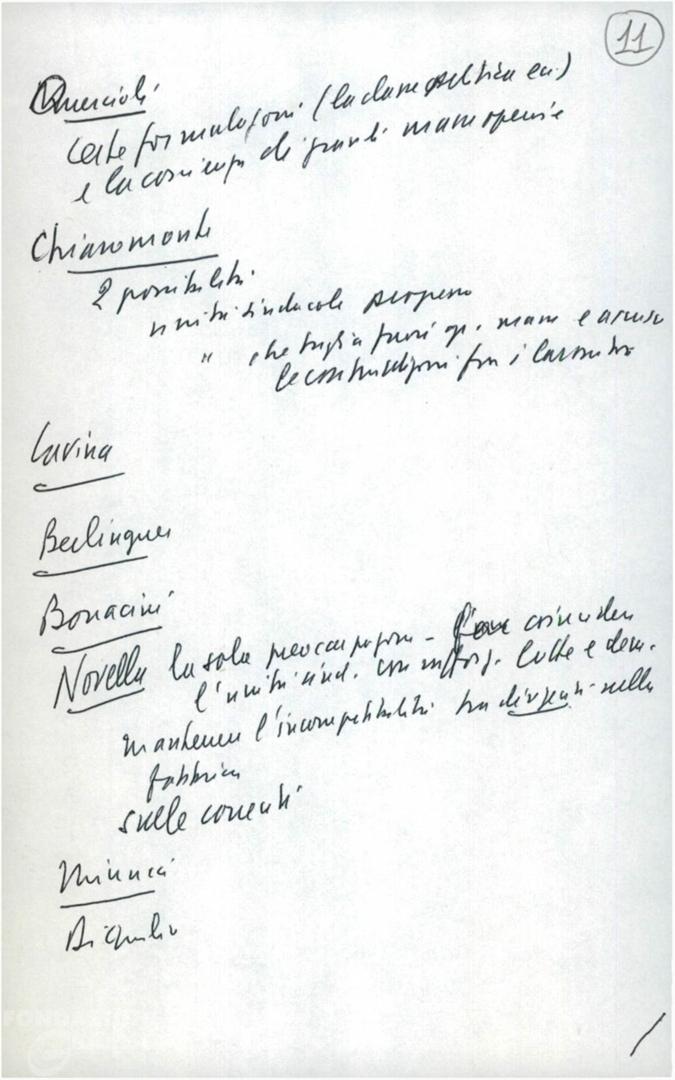 11
Quercioli
Certe formulazioni (la classe politica ecc)
e la coscienza di grandi masse operaie
Chiaromonte
2 possibilità
unità sindacale
" che taglia fuori op. masse e
le contraddizioni fra i lavoratori
Lavina
Berlinguer
Bonacini
Novella la sola preoccupazione - coincidere
l'unità sind. con rafforz. lotte e dem.
mantenere l'incompatibilità tra dirigenti nella
fabbrica
sulle correnti
Minucci
Di Giulio
FONDAZIO